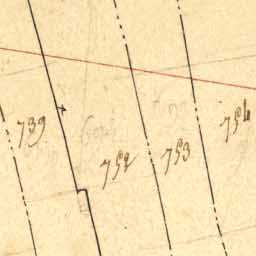 739
752
753
754